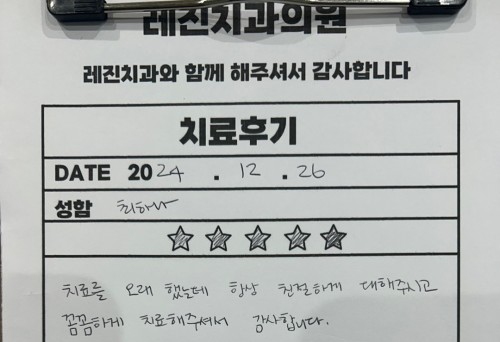 레진치과의원
레진치과와 함께 해주셔서 감사합니다
치료후기
DATE 2024 . 12 . 26
성함 최하나
치료를 오래 했는데 항상 친절하게 대해주시고
꼼꼼하게 치료해주셔서 감사합니다.